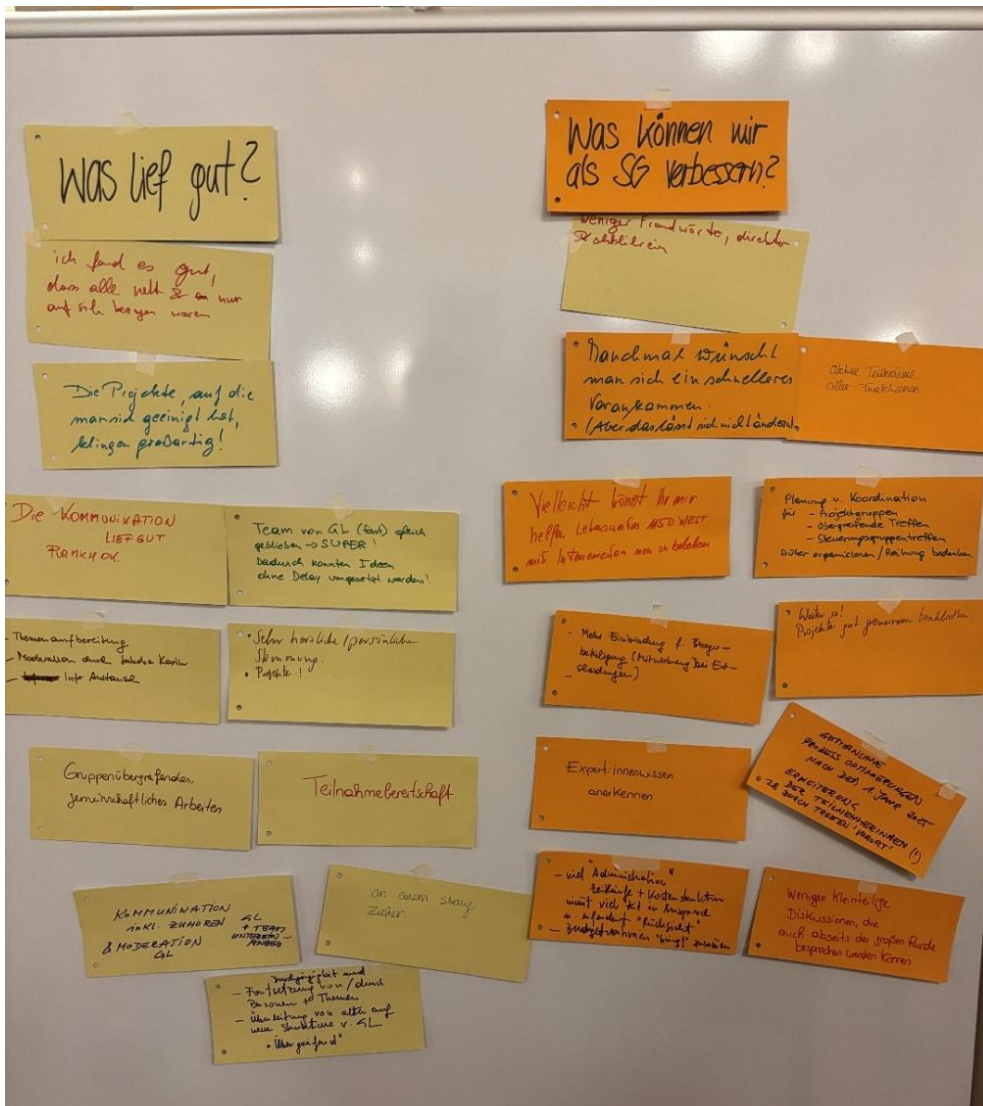 Was lief gut?
ich fand es gut,
dass alle nett & nur
auf sich bezogen waren
Die Projekte, auf die
man sich geeinigt hat,
klingen großartig!
Die KOMMUNIKATION
LIEF GUT
Team von GL (fast) gleich
geblieben → SUPER!
Dadurch konnten Ideen
ohne Delay umgesetzt werden!
- Themenaufbereitung
- Moderation durch Karin
- Info Austausch
• Sehr herzliche/persönliche
Stimmung.
• Projekte!
Gruppenübergreifendes,
gemeinschaftliches Arbeiten
Teilnahmebereitschaft
KOMMUNIKATION
inkl. ZUHÖREN GL
+ TEAM
& MODERATION
GL
an einem Strang
Ziehen
Durchgängigkeit und
- Fortsetzung von/durch
Personen + Themen
- Überleitung von alter auf
neue Struktur v. GL
• Übergreifend"
Was können wir
als SG verbessern?
weniger Fremdwörter, direkter
Manchmal wünscht
man sich ein schnelleres
Vorankommen.
(Aber das lässt sich nicht ändern)
aktive Teilnahme
aller Funktionen
Vielleicht könnt Ihr mir
helfen 1150 WEST
mit neu zu beleben
Planung u. Koordination
für - Projektgruppen
- übergreifende Treffen
- Steuerungsgruppentreffen
früher organisieren / Reihung bedenken
- Mehr Einbindung f. Bürger-
beteiligung (Mitwirkung bei Ent-
scheidungen)
• Weiter so!
Projekte gut gemeinsam beschließen
Expert:innenwissen
anerkennen
GEMEINSAME
PROZESS OPTIMIERUNGEN
NACH DEM 1. JAHR 2025
ERWEITERUNG
DER TEILNEHMERINNEN (!)
z.B. DURCH TREFFEN 'VORORT'
- viel "Administration"
+ Kostenstruktur
nimmt viel Zeit in Anspruch
u. erfordert "Rücksicht"
- Budgetrahmen "bringt" zusammen
Weniger Kleinteilige
Diskussionen, die
auch abseits der großen Runde
besprochen werden können